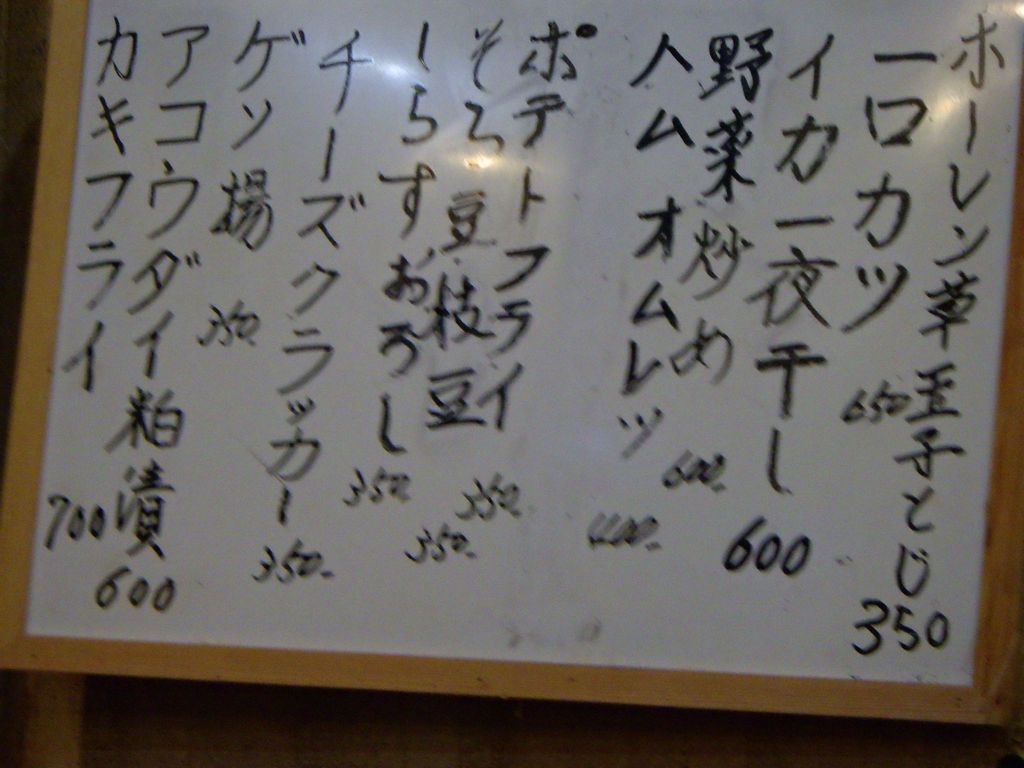 ホーレン草玉子とじ 350
一口カツ 650
イカ一夜干し 600
野菜炒め 600
ハムオムレツ 400
ポテトフライ 350
そら豆枝豆 350
しらすおろし 350
チーズクラッカー 350
ゲソ揚 350
アコウダイ粕漬 600
カキフライ 700